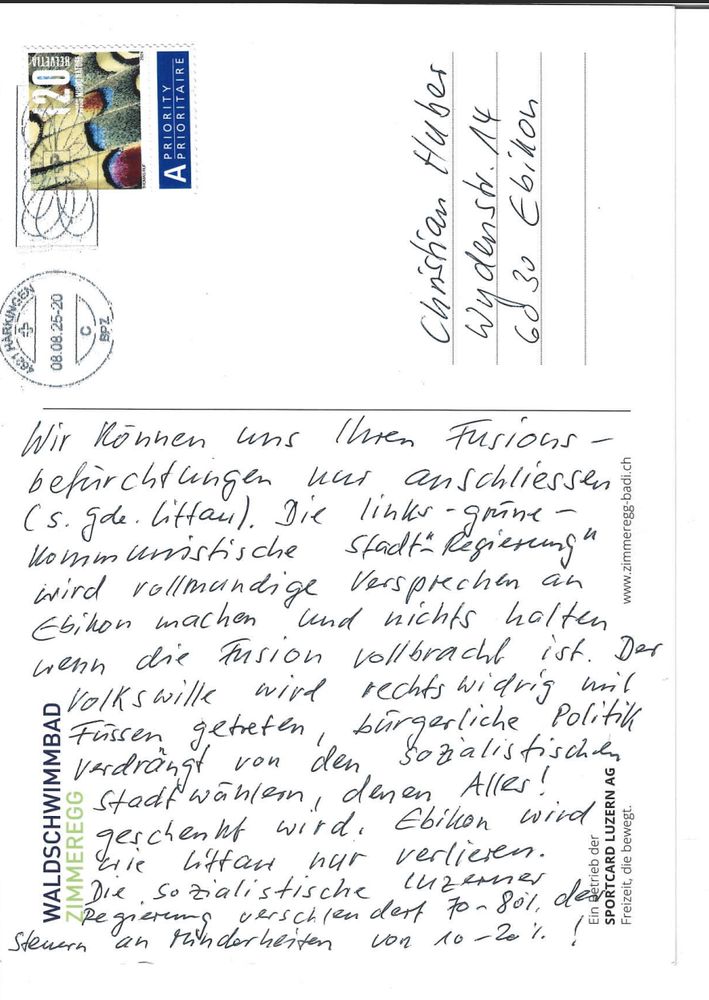 HELVETIA
120
A PRIORITY
PRIORITAIRE
4621 HÄRKINGEN
08.08.25-20
C
BPZ
Christian Huber
Wydenstr. 14
6030 Ebikon
Wir können uns Ihren Fusions-
befürchtungen nur anschliessen
(s. gde. Littau). Die links-grüne-
kommunistische Stadt-"Regierung"
wird vollmundige Versprechen an
Ebikon machen und nichts halten
wenn die Fusion vollbracht ist. Der
Volkswille wird rechtswidrig mit
Füssen getreten, bürgerliche Politik
verdrängt von den sozialistischen
Stadtwählern, denen Alles!
geschenkt wird. Ebikon wird
wie Littau nur verlieren.
Die sozialistische Luzerner
Regierung verschleudert 70-80% der
Steuern an Minderheiten von 10-20%!
WALDSCHWIMMBAD
ZIMMEREGG
www.zimmeregg-badi.ch
Ein Betrieb der
SPORTCARD LUZERN AG
Freizeit, die bewegt.